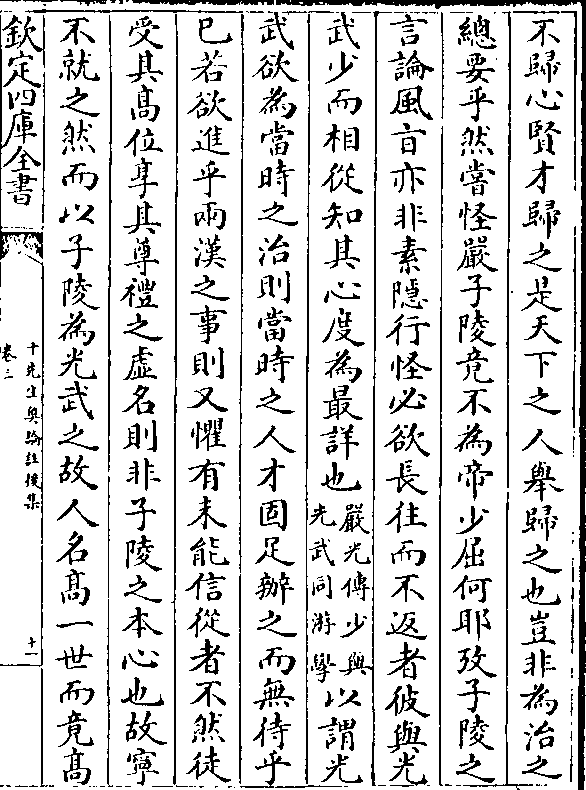 不歸心賢才歸之是天下之人舉歸之也豈非為治之
總要乎然嘗怪嚴子陵竟不為帝少屈何耶攷子陵之
言論風㫖亦非素隱行怪必欲長往而不返者彼與光
武少而相從知其心度為最詳也嚴光傳少與光武同游學以謂光
武欲為當時之治則當時之人才固足辦之而無待乎
已若欲進乎兩漢之事則又懼有未能信從者不然徒
受其髙位享其尊禮之虚名則非子陵之本心也故寧
不就之然而以子陵為光武之故人名髙一世而竟髙
欽定四庫全書
十先生奧論註後集
卷三
十一